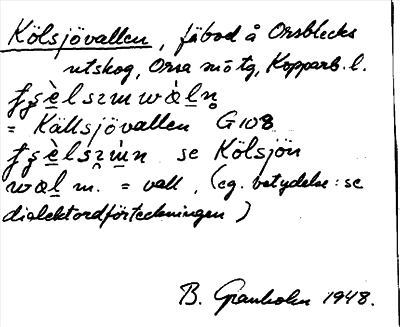 Kölsjövallen, fäbod å Orsblecks
utskog, Orsa mötg, Kopparb. l.
= Källsjövallen G108
se Kölsjön
m. = vall, (eg. betydelse: se
dialektordförteckningen)
B. Granholm 1948.